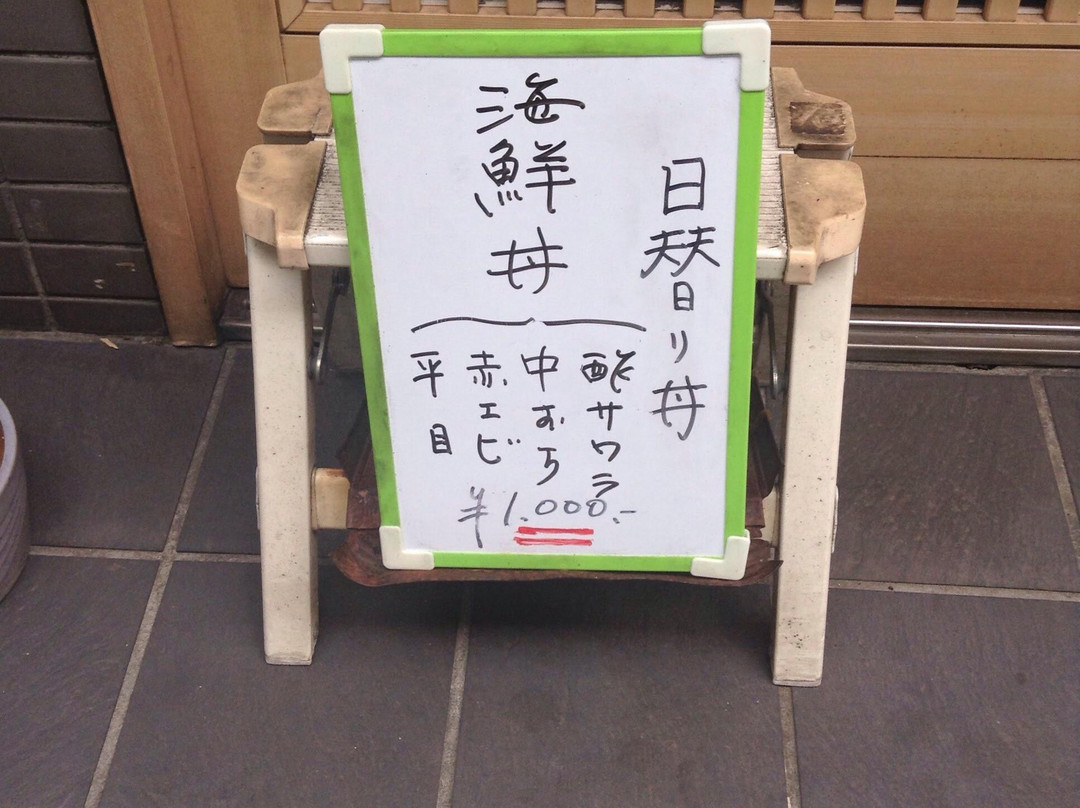 日替り丼
海鮮丼
酢サワラ
中おち
赤エビ
平目
¥1.000.-